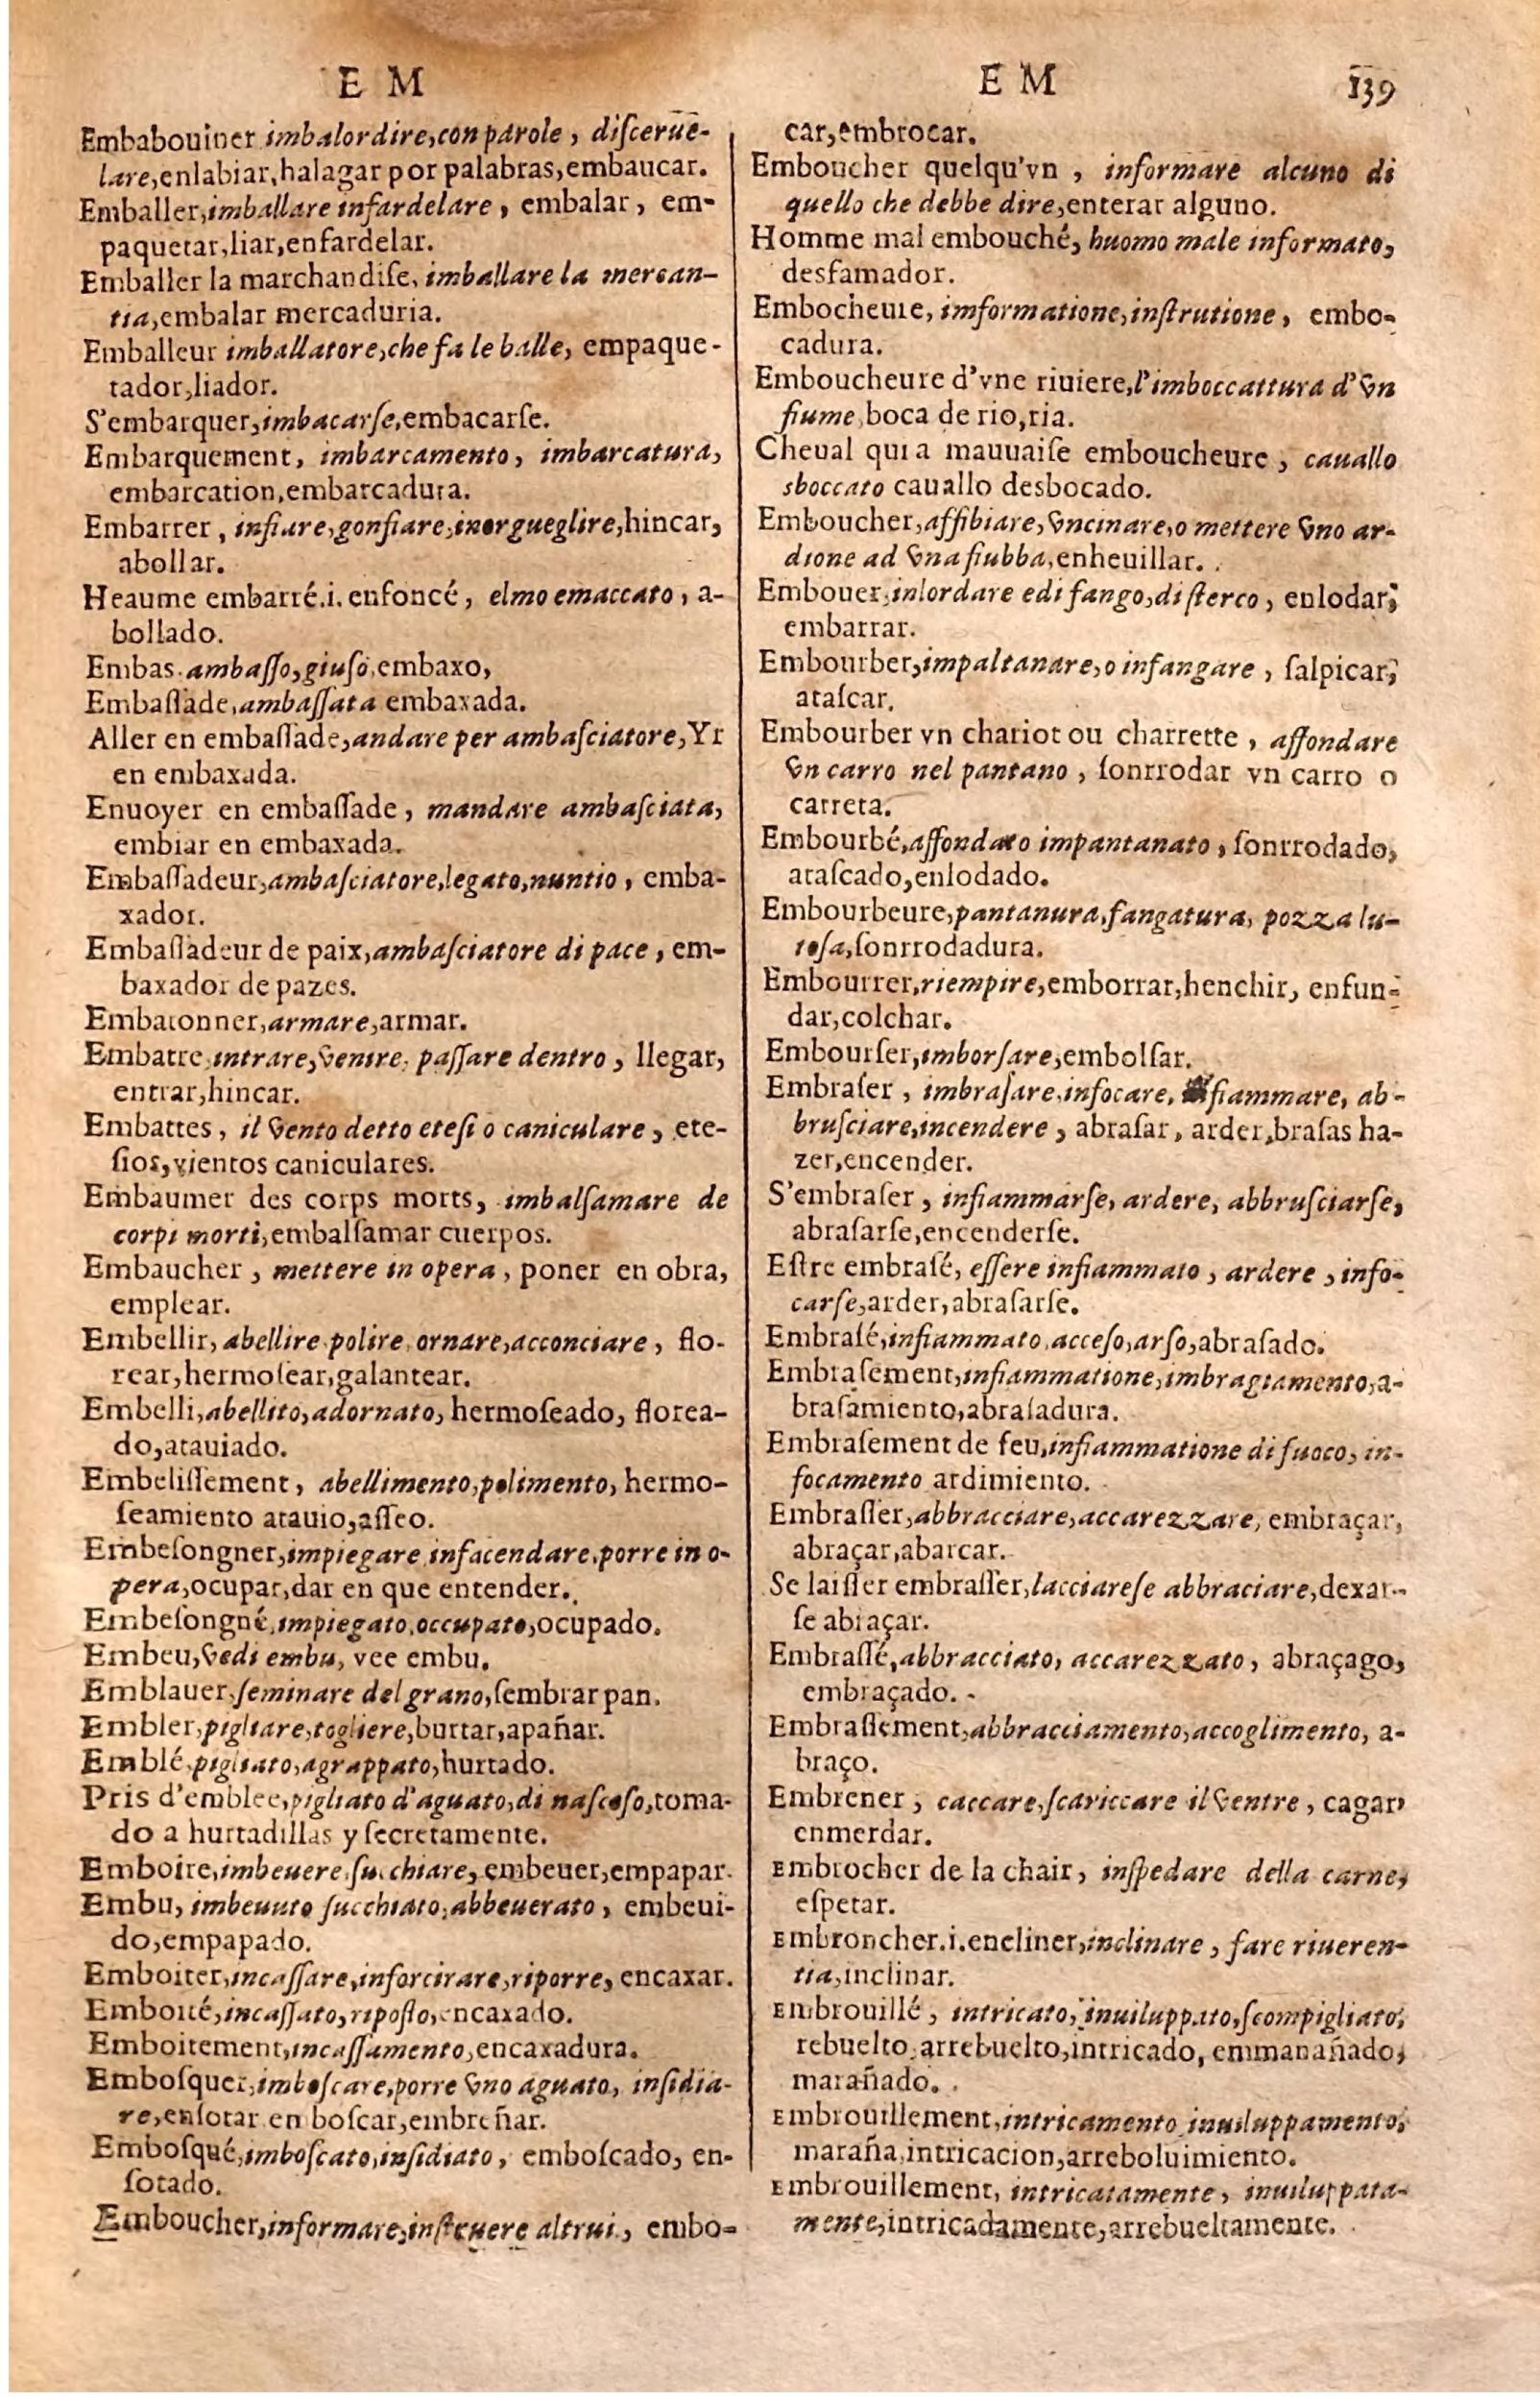 E M
Embabouiner imbalordire,con parole, discerue-
lare,enlabiar,halagar por palabras,embaucar.
Emballer,imballare infardelare, embalar, em-
paquetar,liar,enfardelar.
Emballer la marchandiſe, imballare la mercan-
tia,embalar mercaduria.
Emballeur imballatore,che fa le balle, empaque-
tador,liador.
S'embarquer,imbacarſe,embacarſe.
Embarquement, imbarcamento, imbarcatura,
embarcation,embarcadura.
Embarrer, infiare,gonfiare,inorgueglire,hincar,
abollar.
Heaume embarré.i.enfoncé, elmo emaccato, a-
bollado.
Embas.ambaſſo,giuſo,embaxo,
Embaſſade,ambaſſata embaxada.
Aller en embaſſade,andare per ambaſciatore,Yr
en embaxada.
Enuoyer en embaſſade, mandare ambaſciata,
embiar en embaxada.
Embaſſadeur,ambaſciatore,legato,nuntio, emba-
xador.
Embaſſadeur de paix,ambaſciatore di pace, em-
baxador de pazes.
Embatonner,armare,armar.
Embatre,intrare,venire, paſſare dentro, llegar,
entrar,hincar.
Embattes, il vento detto eteſi o caniculare, ete-
ſios,vientos caniculares.
Embaumer des corps morts, imbalſamare de
corpi morti,embalſamar cuerpos.
Embaucher, mettere in opera, poner en obra,
emplear.
Embellir, abellire polire, ornare,acconciare, flo-
rear,hermoſear,galantear.
Embelli,abellito,adornato, hermoſeado, florea-
do,atauiado.
Embeliſſement, abellimento,polimento, hermo-
ſeamiento atauio,aſſeo.
Embeſongner,impiegare infacendare,porre in o-
pera,ocupar,dar en que entender.
Embeſongné,impiegato,occupato,ocupado.
Embeu,vedi embu, vee embu.
Emblauer,ſeminare del grano,ſembrar pan.
Embler,pigliare,togliere,burtar,apañar.
Emblé,pigliato,agrappato,hurtado.
Pris d'emblee,pigliato d'aguato,di naſcoſo,toma-
do a hurtadillas y ſecretamente.
Emboire,imbeuere ſucchiare, embeuer,empapar.
Embu, imbeuuto ſucchiato,abbeuerato, embeui-
do,empapado.
Emboiter,incaſſare,inforcirare,riporre, encaxar.
Emboité,incaſſato,ripoſto,encaxado.
Emboitement,incaſſamento,encaxadura.
Emboſquer,imboſcare,porre vno aguato, inſidia-
re,enſotar en boſcar,embreñar.
Emboſqué,imboſcato,inſidiato, emboſcado, en-
ſotado.
Emboucher,informare,inſtruere altrui, embo-
E M 139
car,embrocar.
Emboucher quelqu'vn, informare alcuno di
quello che debbe dire,enterar alguno.
Homme mal embouché, huomo male informato,
desfamador.
Embocheure, imformatione,inſtrutione, embo-
cadura.
Emboucheure d'vne riuiere,l'imboccattura d'vn
fiume,boca de rio,ria.
Cheual qui a mauuaiſe emboucheure, cauallo
sboccato cauallo desbocado.
Emboucher,affibiare,vncinare,o mettere vno ar-
dione ad vna fiubba,enheuillar.
Embouer,inlordare edi fango,di ſterco, enlodar,
embarrar.
Embourber,impaltanare,o infangare, ſalpicar,
ataſcar.
Embourber vn chariot ou charrette, affondare
vn carro nel pantano, ſonrrodar vn carro o
carreta.
Embourbé,affondato impantanato, ſonrrodado,
ataſcado,enlodado.
Embourbeure,pantanura,fangatura, pozza lu-
toſa,ſonrrodadura.
Embourrer,riempire,emborrar,henchir, enfun-
dar,colchar.
Embourſer,imborſare,embolſar.
Embraſer, imbraſare,infocare, fiammare, ab-
bruſciare,incendere, abraſar, arder,braſas ha-
zer,encender.
S'embraſer, infiammarſe, ardere, abbruſciarſe,
abraſarſe,encenderſe.
Eſtre embraſé, eſſere infiammato, ardere, info-
carſe,arder,abraſarſe.
Embraſé,infiammato,acceſo,arſo,abraſado.
Embraſement,infiammatione,imbragiamento,a-
braſamiento,abraſadura.
Embraſement de feu,infiammatione di fuoco, in-
focamento ardimiento.
Embraſſer,abbracciare,accarezzare, embraçar,
abraçar,abarcar.
Se laiſſer embraſſer,lacciareſe abbraciare,dexar-
ſe abraçar.
Embraſſé,abbracciato, accarezzato, abraçago,
embraçado.
Embraſſement,abbracciamento,accoglimento, a-
braço.
Embrener, caccare,ſcariccare il ventre, cagar,
enmerdar.
Embrocher de la chair, inſpedare della carne,
eſpetar.
Embroncher.i.encliner,inclinare, fare riueren-
tia,inclinar.
Embrouillé, intricato, inuiluppato,ſcompigliato,
rebuelto,arrebuelto,intricado, emmanañado,
marañado.
Embrouillement,intricamento inuiluppamento,
maraña,intricacion,arreboluimiento.
Embrouillement, intricatamente, inuiluppata-
mente,intricadamente,arrebueltamente.